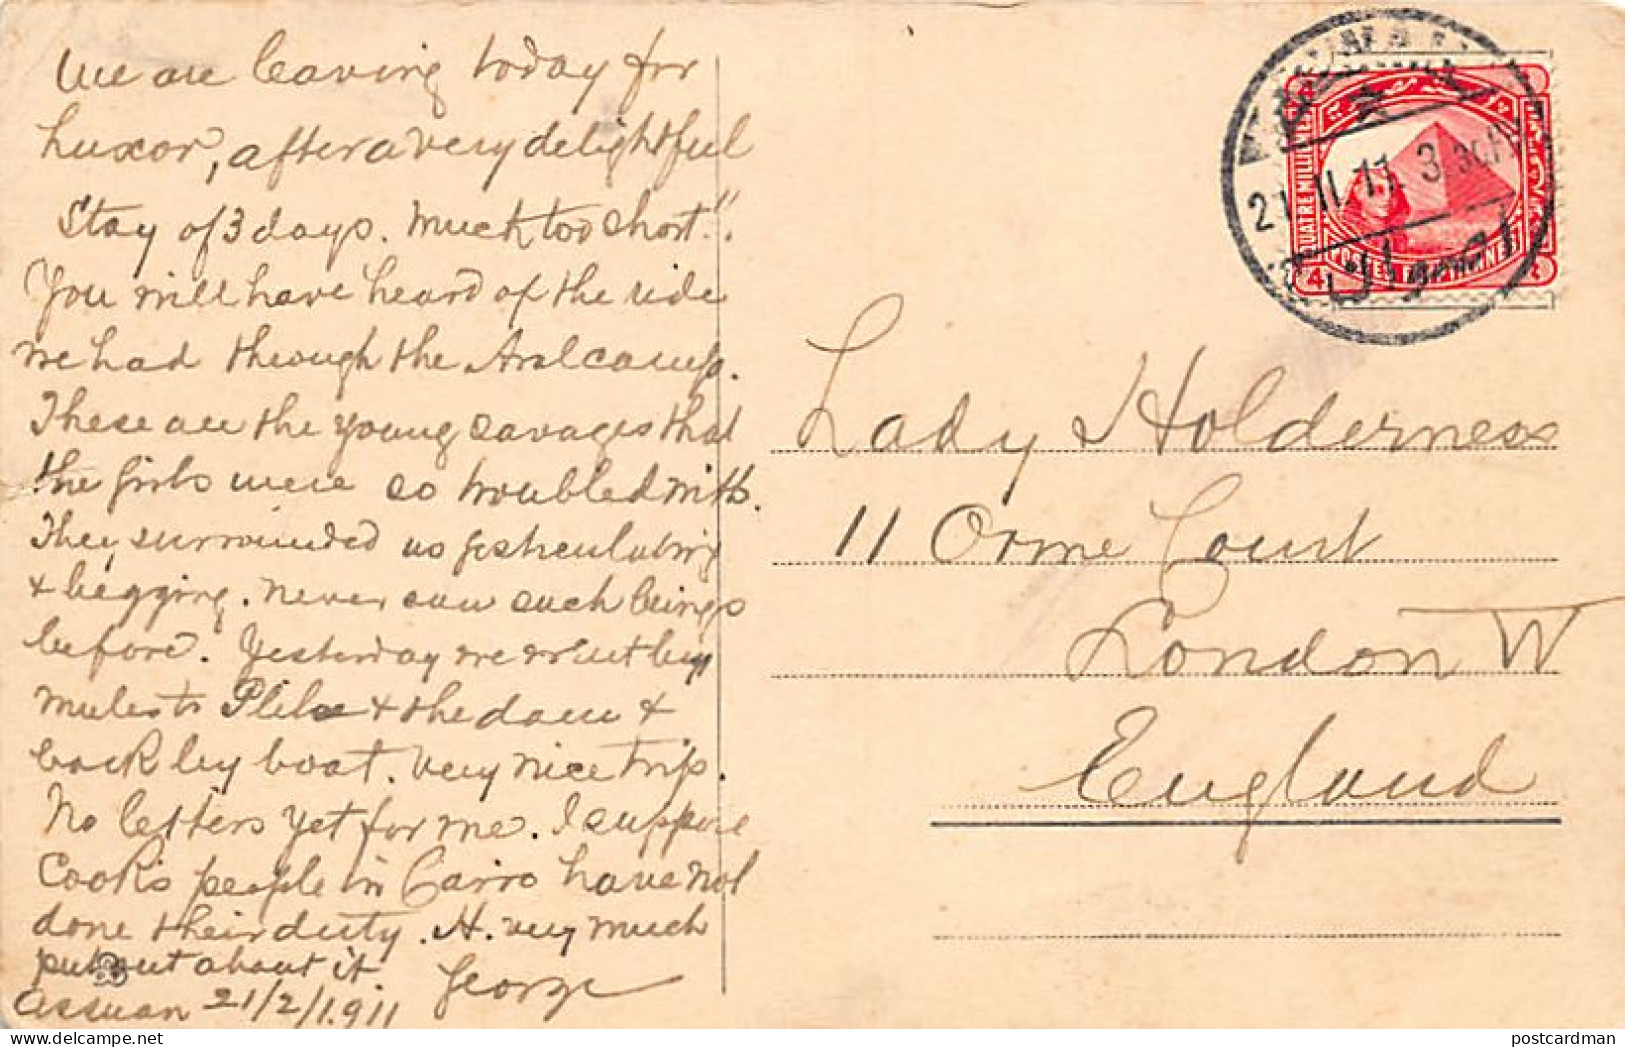 We are leaving today for
Luxor, after a very delightful
Stay of 3 days. Much too short!!
You will have heard of the ride
we had through the Arab camp.
These are the young savages that
the girls were so troubled with.
They surrounded us gesticulating
& begging. Never saw such beings
before. Yesterday we went by
mules to Philae & the dam &
back by boat. Very nice trip.
No letters yet for me. I suppose
Cook's people in Cairo have not
done their duty. H. very much
put out about it.
George
Assuan 21/2/1911
21.II.11. 3
اصوان
QUATRE MILLIEMES
POSTES EGYPTIENNES
4
Lady Holderness
11 Orme Court
London W
England
postcardman